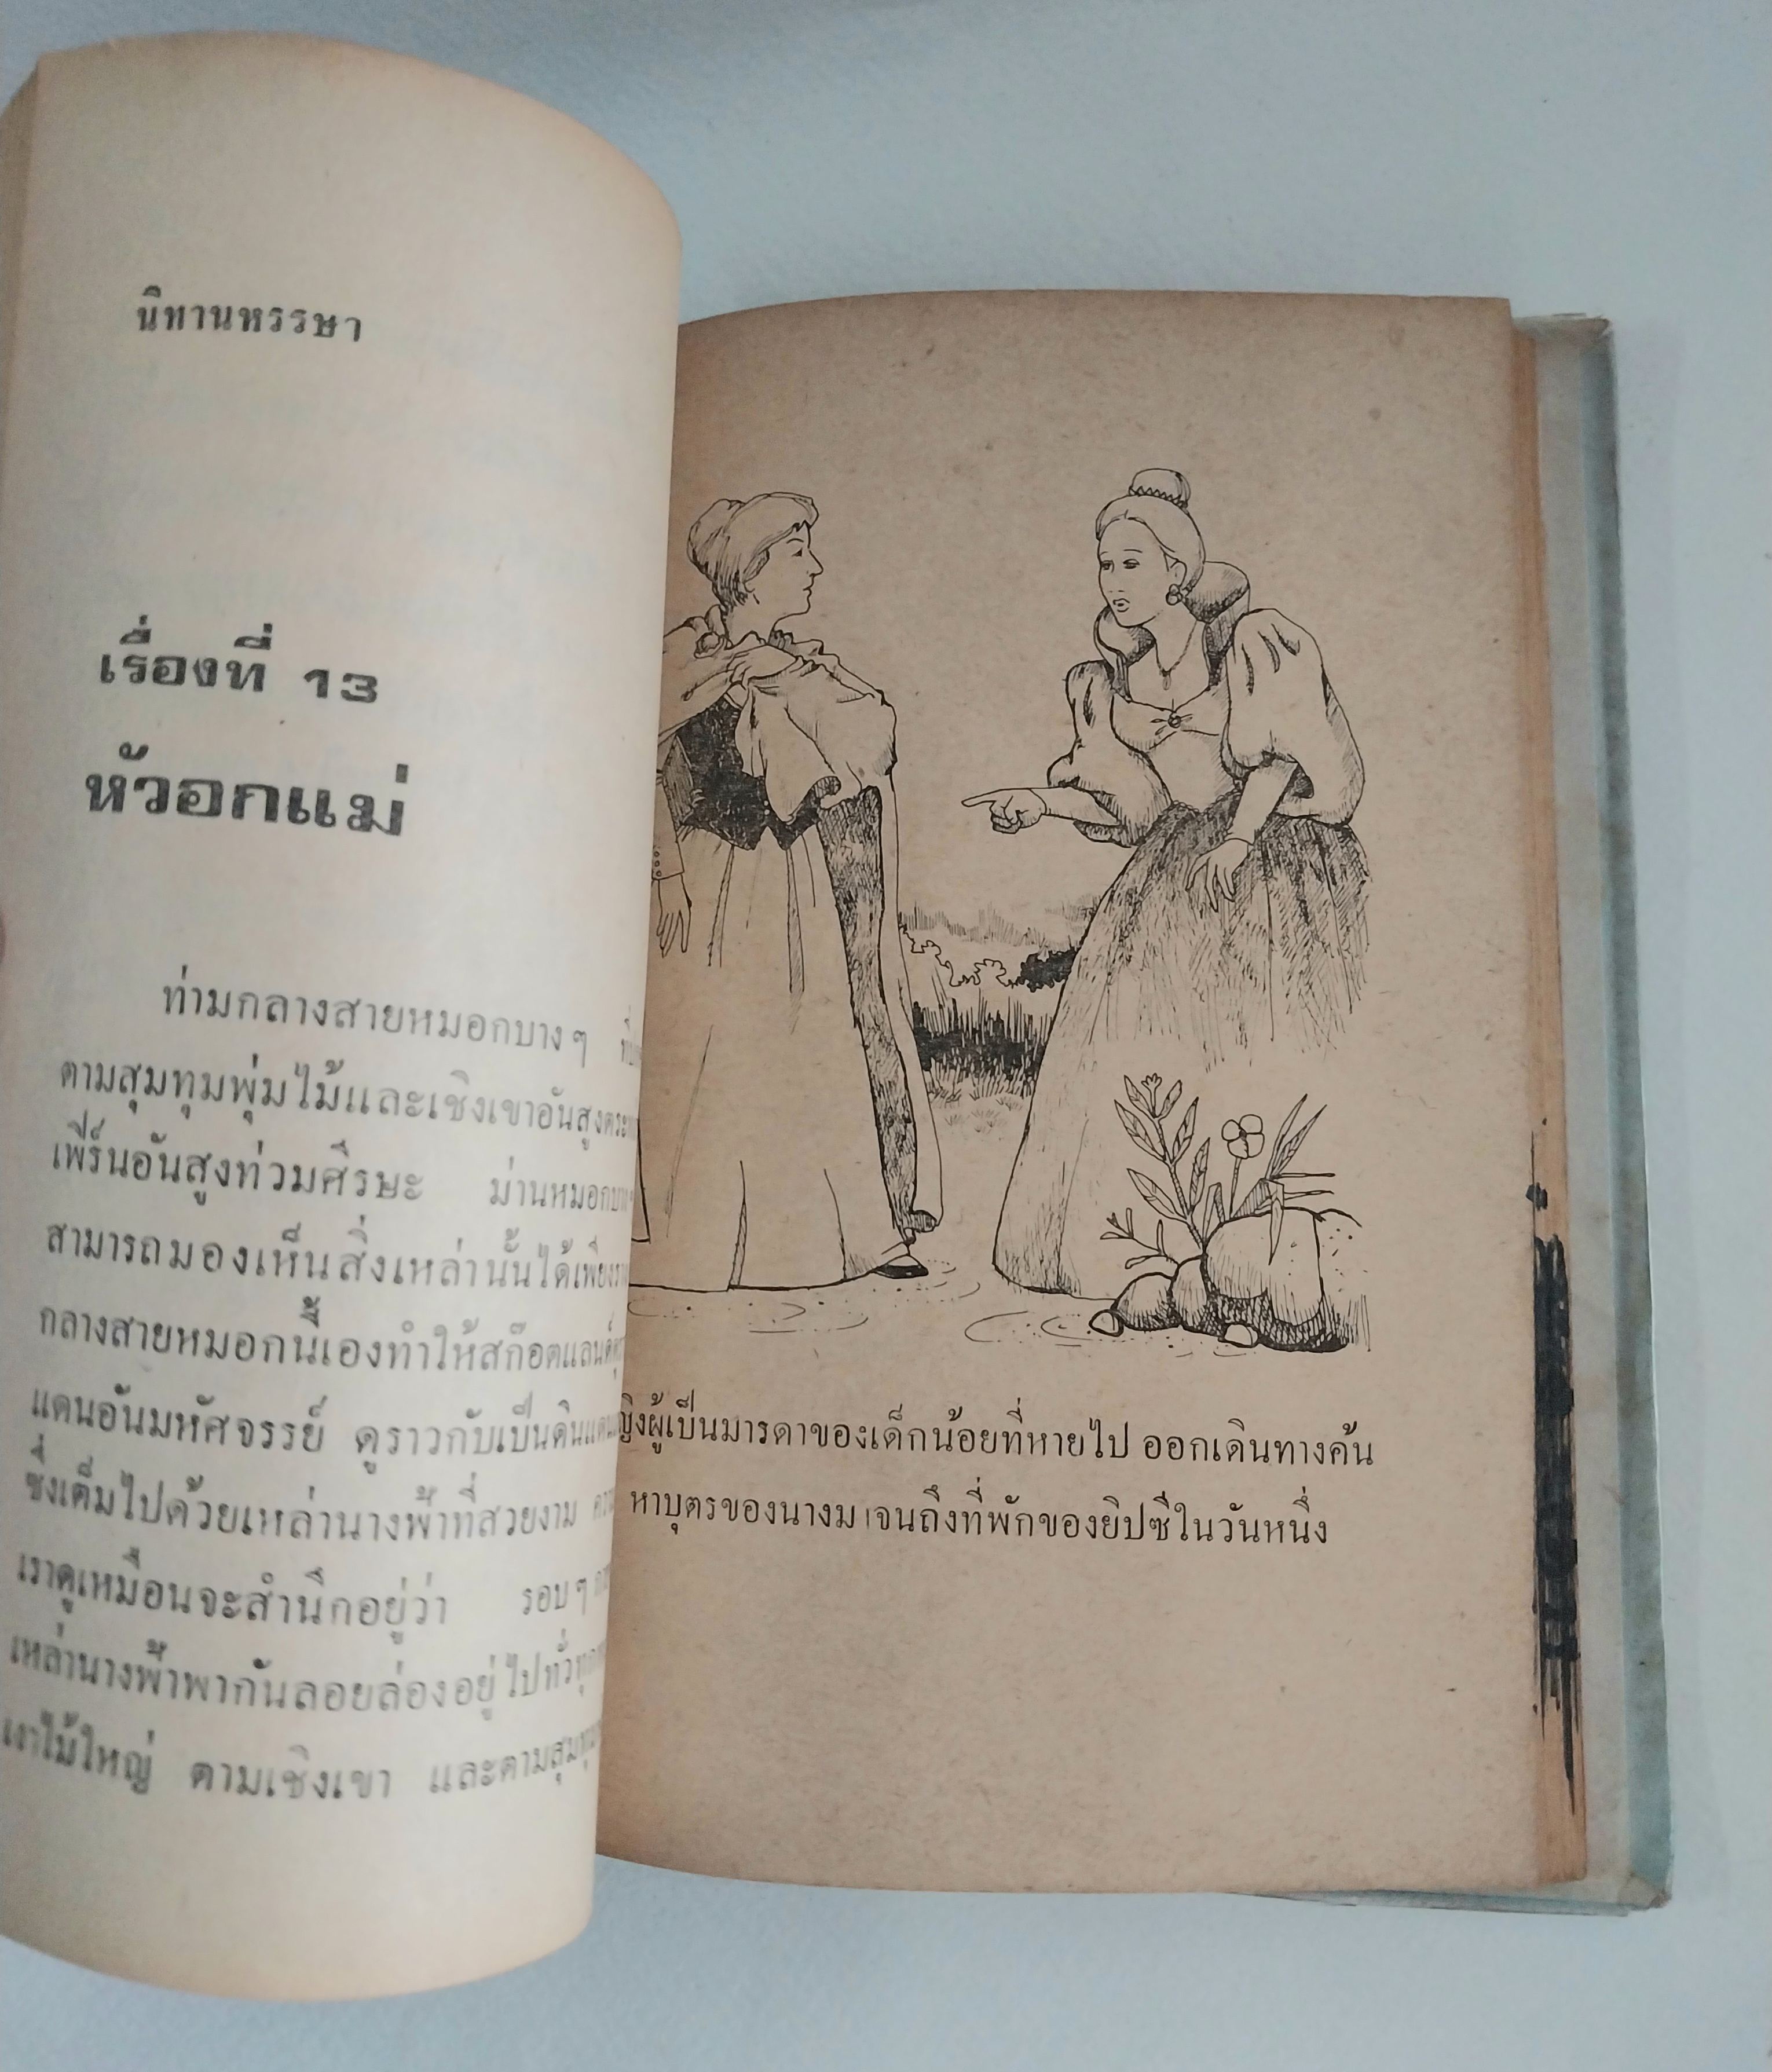 นิทานหรรษา
เรื่องที่ 13
หัวอกแม่
ท่ามกลางสายหมอกบางๆ
ตามสุมทุมพุ่มไม้และเชิงเขาอันสูง
เฟิร์นอันสูงท่วมศีรษะ ม่านหมอก
สามารถมองเห็นสิ่งเหล่านั้นได้เพียง
กลางสายหมอกนี้เองทำให้สก๊อตแลนด์
แดนอันมหัศจรรย์ ดูราวกับเป็นดินแดน
ซึ่งเต็มไปด้วยเหล่านางฟ้าที่สวยงาม
เราดูเหมือนจะสำนึกอยู่ว่า รอบๆ
เหล่านางฟ้าพากันลอยล่องอยู่ไปทั่ว
เงาไม้ใหญ่ ตามเชิงเขา และตาม
ผู้เป็นมารดาของเด็กน้อยที่หายไป ออกเดินทางค้น
หาบุตรของนางมาจนถึงที่พักของยิปซีในวันหนึ่ง